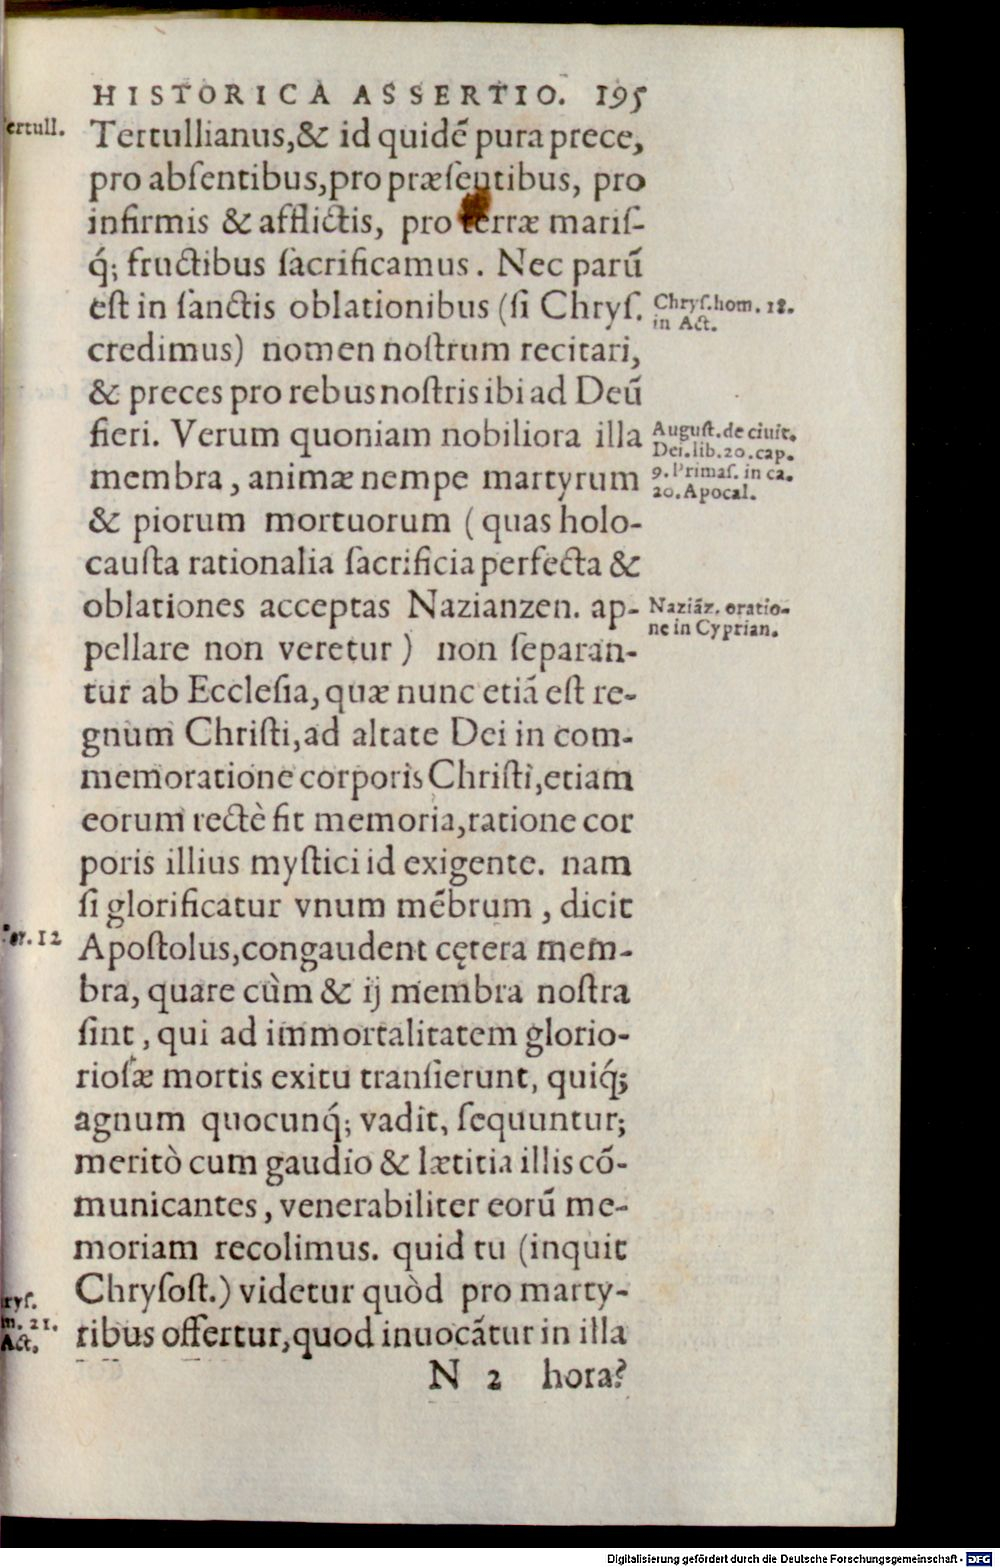 HISTORICA ASSERTIO. 195
ertull.
Tertullianus,& id quidẽ pura prece,
pro abſentibus,pro præſentibus, pro
infirmis & afflictis, pro terræ mariſ-
q́; fructibus ſacrificamus. Nec parũ
eſt in ſanctis oblationibus (ſi Chryſ.
Chryſ.hom. 18.
in Act.
credimus) nomen noſtrum recitari,
& preces pro rebus noſtris ibi ad Deũ
fieri. Verum quoniam nobiliora illa
Auguſt.de ciuit.
Dei.lib.20.cap.
9.Primaſ. in ca.
20.Apocal.
membra, animæ nempe martyrum
& piorum mortuorum ( quas holo-
cauſta rationalia ſacrificia perfecta &
oblationes acceptas Nazianzen. ap-
Naziãz. oratio-
ne in Cyprian.
pellare non veretur ) non ſeparan-
tur ab Eccleſia, quæ nunc etiã eſt re-
gnum Chriſti,ad altare Dei in com-
memoratione corporis Chriſti,etiam
eorum rectè fit memoria,ratione cor
poris illius myſtici id exigente. nam
ſi glorificatur vnum mẽbrum , dicit
or. 12
Apoſtolus,congaudent cętera mem-
bra, quare cùm & ij membra noſtra
ſint , qui ad immortalitatem glorio-
rioſæ mortis exitu tranſierunt, quiq́;
agnum quocunq́; vadit, ſequuntur;
meritò cum gaudio & lætitia illis cõ-
municantes , venerabiliter eorũ me-
moriam recolimus. quid tu (inquit
Chryſoſt.) videtur quòd pro marty-
ryſ.
m. 21.
Act.
ribus offertur,quod inuocãtur in illa
N 2 hora?
Digitalisierung gefördert durch die Deutsche Forschungsgemeinschaft - DFG